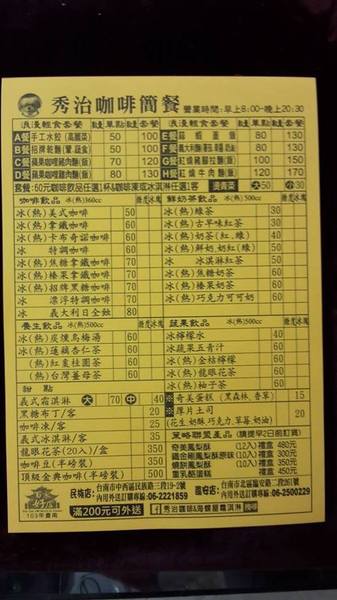 秀治咖啡簡餐
營業時間:早上8:00-晚上20:30
浪漫輕食套餐 單點 套餐
A餐 手工水餃(高麗菜) 50 100
B餐 招牌乾麵(葷.蔬食) 50 100
C餐 蘋果咖哩豬肉麵(飯) 70 120
D餐 蘋果咖哩雞肉麵(飯) 80 130
浪漫輕食套餐 單點 套餐
E餐 蛋飯 80 130
F餐 80 130
G餐 紅燒豬腳拉麵(飯) 100 150
H餐 紅燒牛肉麵(飯) 110 160
套餐:60元咖啡飲品任選1杯&咖啡凍或冰淇淋任選1客
燙青菜 大50 小30
咖啡飲品 冰(熱)360cc
冰(熱)美式咖啡 50
冰(熱)拿鐵咖啡
冰(熱)卡布奇諾咖啡
冰 特調咖啡 60
冰(熱)焦糖拿鐵咖啡
冰(熱)榛果拿鐵咖啡
冰(熱)招牌黑糖咖啡
冰 漂浮特調咖啡 70
冰 義大利日全蝕 80
鮮奶茶飲品 冰(熱)500cc
冰(熱)綠茶 30
冰(熱)古早味紅茶 30
冰(熱)奶茶(紅.綠) 40
冰(熱)鮮奶奶紅茶 50
冰 冰淇淋紅茶
冰(熱)焦糖奶茶
冰(熱)榛果奶茶
冰(熱)巧克力可可奶 50
養生飲品 冰(熱)500cc
冰(熱)炭燻烏梅湯 60
冰(熱)蓮藕杏仁茶
(熱)紅棗桂圓茶
(熱)台灣薑母茶 60
蔬果飲品 冰(熱)500cc
冰檸檬水 40
冰蔬果五青汁 60
冰(熱)金桔檸檬
冰(熱)龍眼花茶
冰(熱)柚子茶 60
甜點
義式霜淇淋 大 70 中 40
黑糖布丁/客 20
咖啡凍/客 25
義式冰淇淋/客 35
龍眼花茶(20入)/盒 350
咖啡豆(半磅裝) 350
頂級金典咖啡(半磅裝) 500
※奇美蛋糕(黑森林 香草) 15
※厚片土司 20
(花生 奶酥 巧克力.草莓.奶油)
策略聯盟產品 (請提早2日前訂貨)
奇美鳳梨酥 (12入)禮盒 480元
(10入)禮盒 300元
燒餅鳳梨酥 (10入)禮盒 350元
重乳酪蛋糕 450元
民族店: 台南市中西區民族路三段19-2號
內用外送訂購專線:06-2221859
臨安店: 台南市北區臨安路二段261號
內用外送訂購專線:06-2500229
103年會用
滿200元可外送
秀治咖啡&海頓屋霜淇淋 搜尋